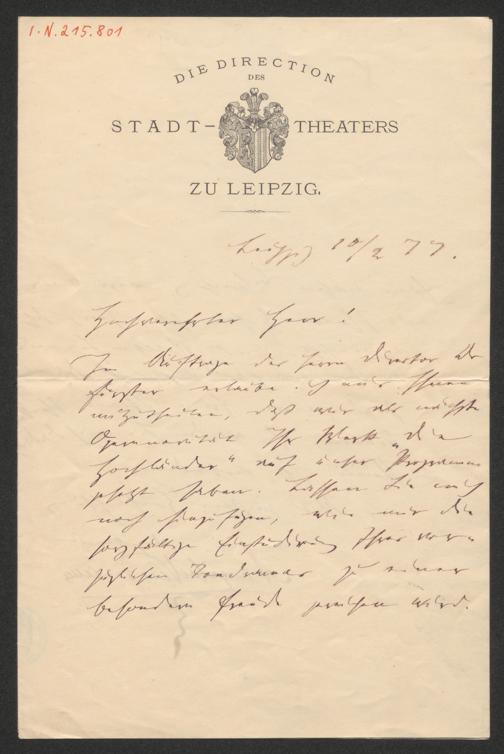 I.N. 215.801
DIE DIRECTION
DES
STADT-THEATERS
ZU LEIPZIG.
Leipzig 10/2 77.
Hochverehrter Herr!
Im Auftrage des Herrn Director Dr
Förster erlaube ich mir Ihnen
mitzutheilen, daß wir als nächste
Opernnovität Ihr Werk „die
Hochländer“ auf unser Programm
gesetzt haben. Lassen Sie mich
noch hinzufügen, wie mir die
sorgfältige Einstudirung Ihres vor-
züglichen Tondramas zu einer
besondern Freude gereichen wird.